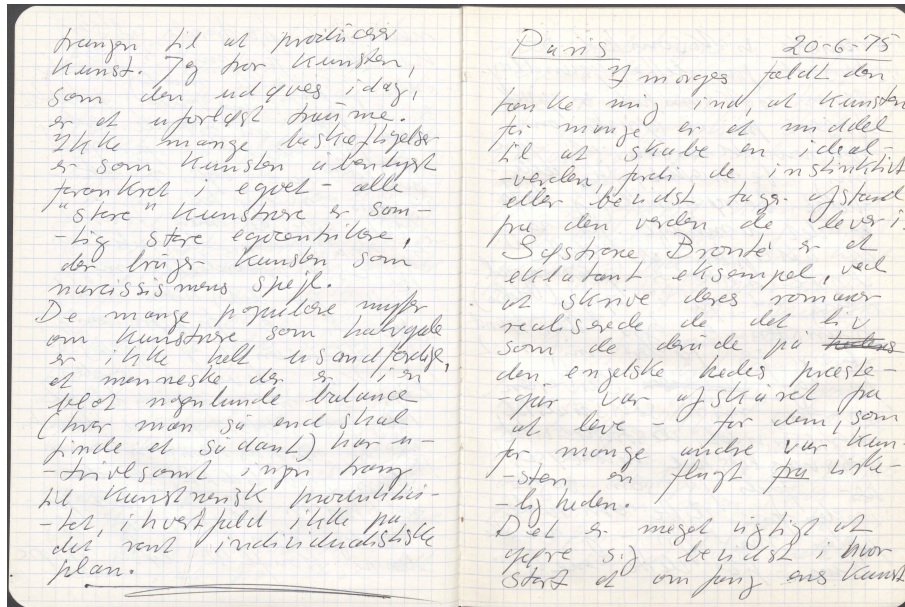 trangen til at producere
Kunst. Jeg tror Kunsten,
som den udøves idag,
er et uforløst traume.
Ikke mange beskæftigelser
er som Kunsten åbenlyst
forankret i egoet - alle
"store" Kunstnere er som-
-tig store egocentrikere,
der bruger Kunsten som
narcissismens spejl.
De mange populære myter
om Kunstnere som halvgale
er ikke helt usandfærdige,
et menneske der er i en
blot nogenlunde balance
(hvor man så end skal
finde et sådant) har u-
-tvivlsomt ingen trang
til Kunstnerisk produktivi-
-tet, i hvert fald ikke på
det rent individualistiske
plan.
Paris 20-6-75
I morges faldt den
tanke mig ind, at Kunsten
for mange er et middel
til at skabe en ideal-
-verden, fordi de instinktivt
eller bevidst tager afstand
fra den verden de lever i.
Søstrene Brontë er et
eklatant eksempel, ved
at skrive deres romaner
realiserede de det liv
som de derude på hedens
den engelske hedes præste-
-går var afskåret fra
at leve - for dem, som
for mange andre var Kun-
-sten en flugt fra virke-
-ligheden.
Det er meget vigtigt at
gøre sig bevidst i hvor
stort et omfang ens Kunst